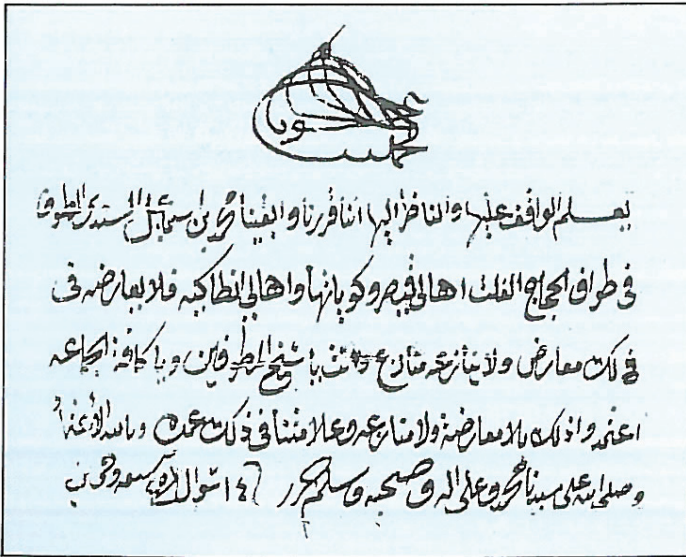 يعلم الواقف عليها والناظر اليها اننا قررنا وابقينا محمد بن اسماعيل السندي المطوف
في طوافة الحجاج اهالي قيصر وكويانها واهالي انطاكيه فلا يعارضه في
ذلك معارض ولا ينازعه منازع شيخ المطوفين ويا كافة الجماعه
اعتمدوا ذلك بلا معارضة ولا منازعه وعلامتنا في ذلك عمده وبالله الاعتماد
وصلى الله على سيدنا محمد وعلى اله وصحبه وسلم حرر ١٤ شوال